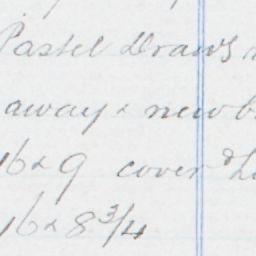 Pastel Draws
away & new
16 x 9 cover'd
16 x 8 3/4